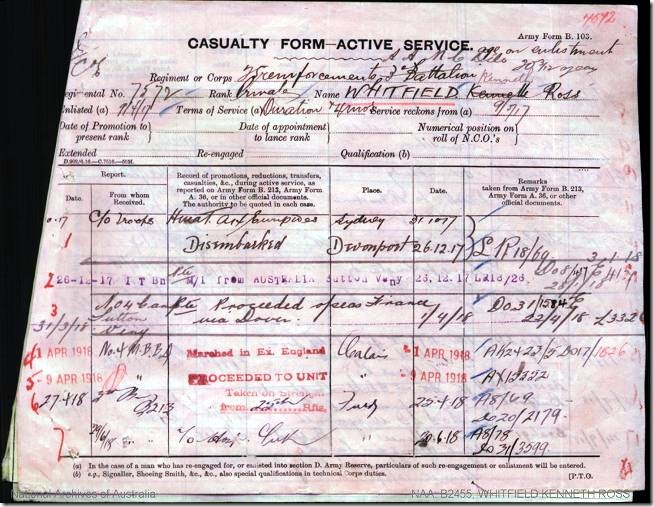 7572
Army Form B. 103.
CASUALTY FORM—ACTIVE SERVICE.
age on enlistment
Regiment or Corps 25 reinforcements 3rd Battalion
Kenneth
Regimental No. 7572 Rank Private Name WHITFIELD Kenneth Ross
Enlisted (a) 9/7/17 Terms of Service (a) Duration & 4 mos Service reckons from (a) 9/7/17
Date of Promotion to present rank
Date of appointment to lance rank
Numerical position on roll of N.C.O's.
Extended Re-engaged Qualification (b)
Report.
Date.
From whom Received.
Record of promotions, reductions, transfers, casualties, &c., during active service, as reported on Army Form B. 213, Army Form A. 36, or in other official documents. The authority to be quoted in each case.
Place.
Date.
Remarks taken from Army Form B. 213, Army Form A. 36, or in other official documents.
C/o Troops H.M.A.T. Euripides Sydney 31.10.17
1 Disembarked Devonport 26.12.17 LR18/69
2 26-12-17 1 T Bn Pte M/I from AUSTRALIA Sutton Veny 26.12.17 LR18/26
3 Pte Proceeded o/seas France
31/3/18 Sutton Veny via Dover. 1/4/18 22/4/18
4 1 APR 1918 No. 4 M.B.E.D Marched in Ex. England Calais 1 APR 1918
5 9 APR 1918 " PROCEEDED TO UNIT " 9 APR 1918
6 27-4-18 B213 Taken on Strength from 25th Rfts. Field 25-4-18 A8/69
Do20/2179.
7 29/6/18 " " To Hosp. Sick " 20.6.18 A8/78
Do31/3599.
(a) In the case of a man who has re-engaged for, or enlisted into section D. Army Reserve, particulars of such re-engagement or enlistment will be entered.
(b) e.g., Signaller, Shoeing Smith, &c., &c., also special qualifications in technical Corps duties.
[P.T.O.
National Archives of Australia
NAA: B2455, WHITFIELD KENNETH ROSS